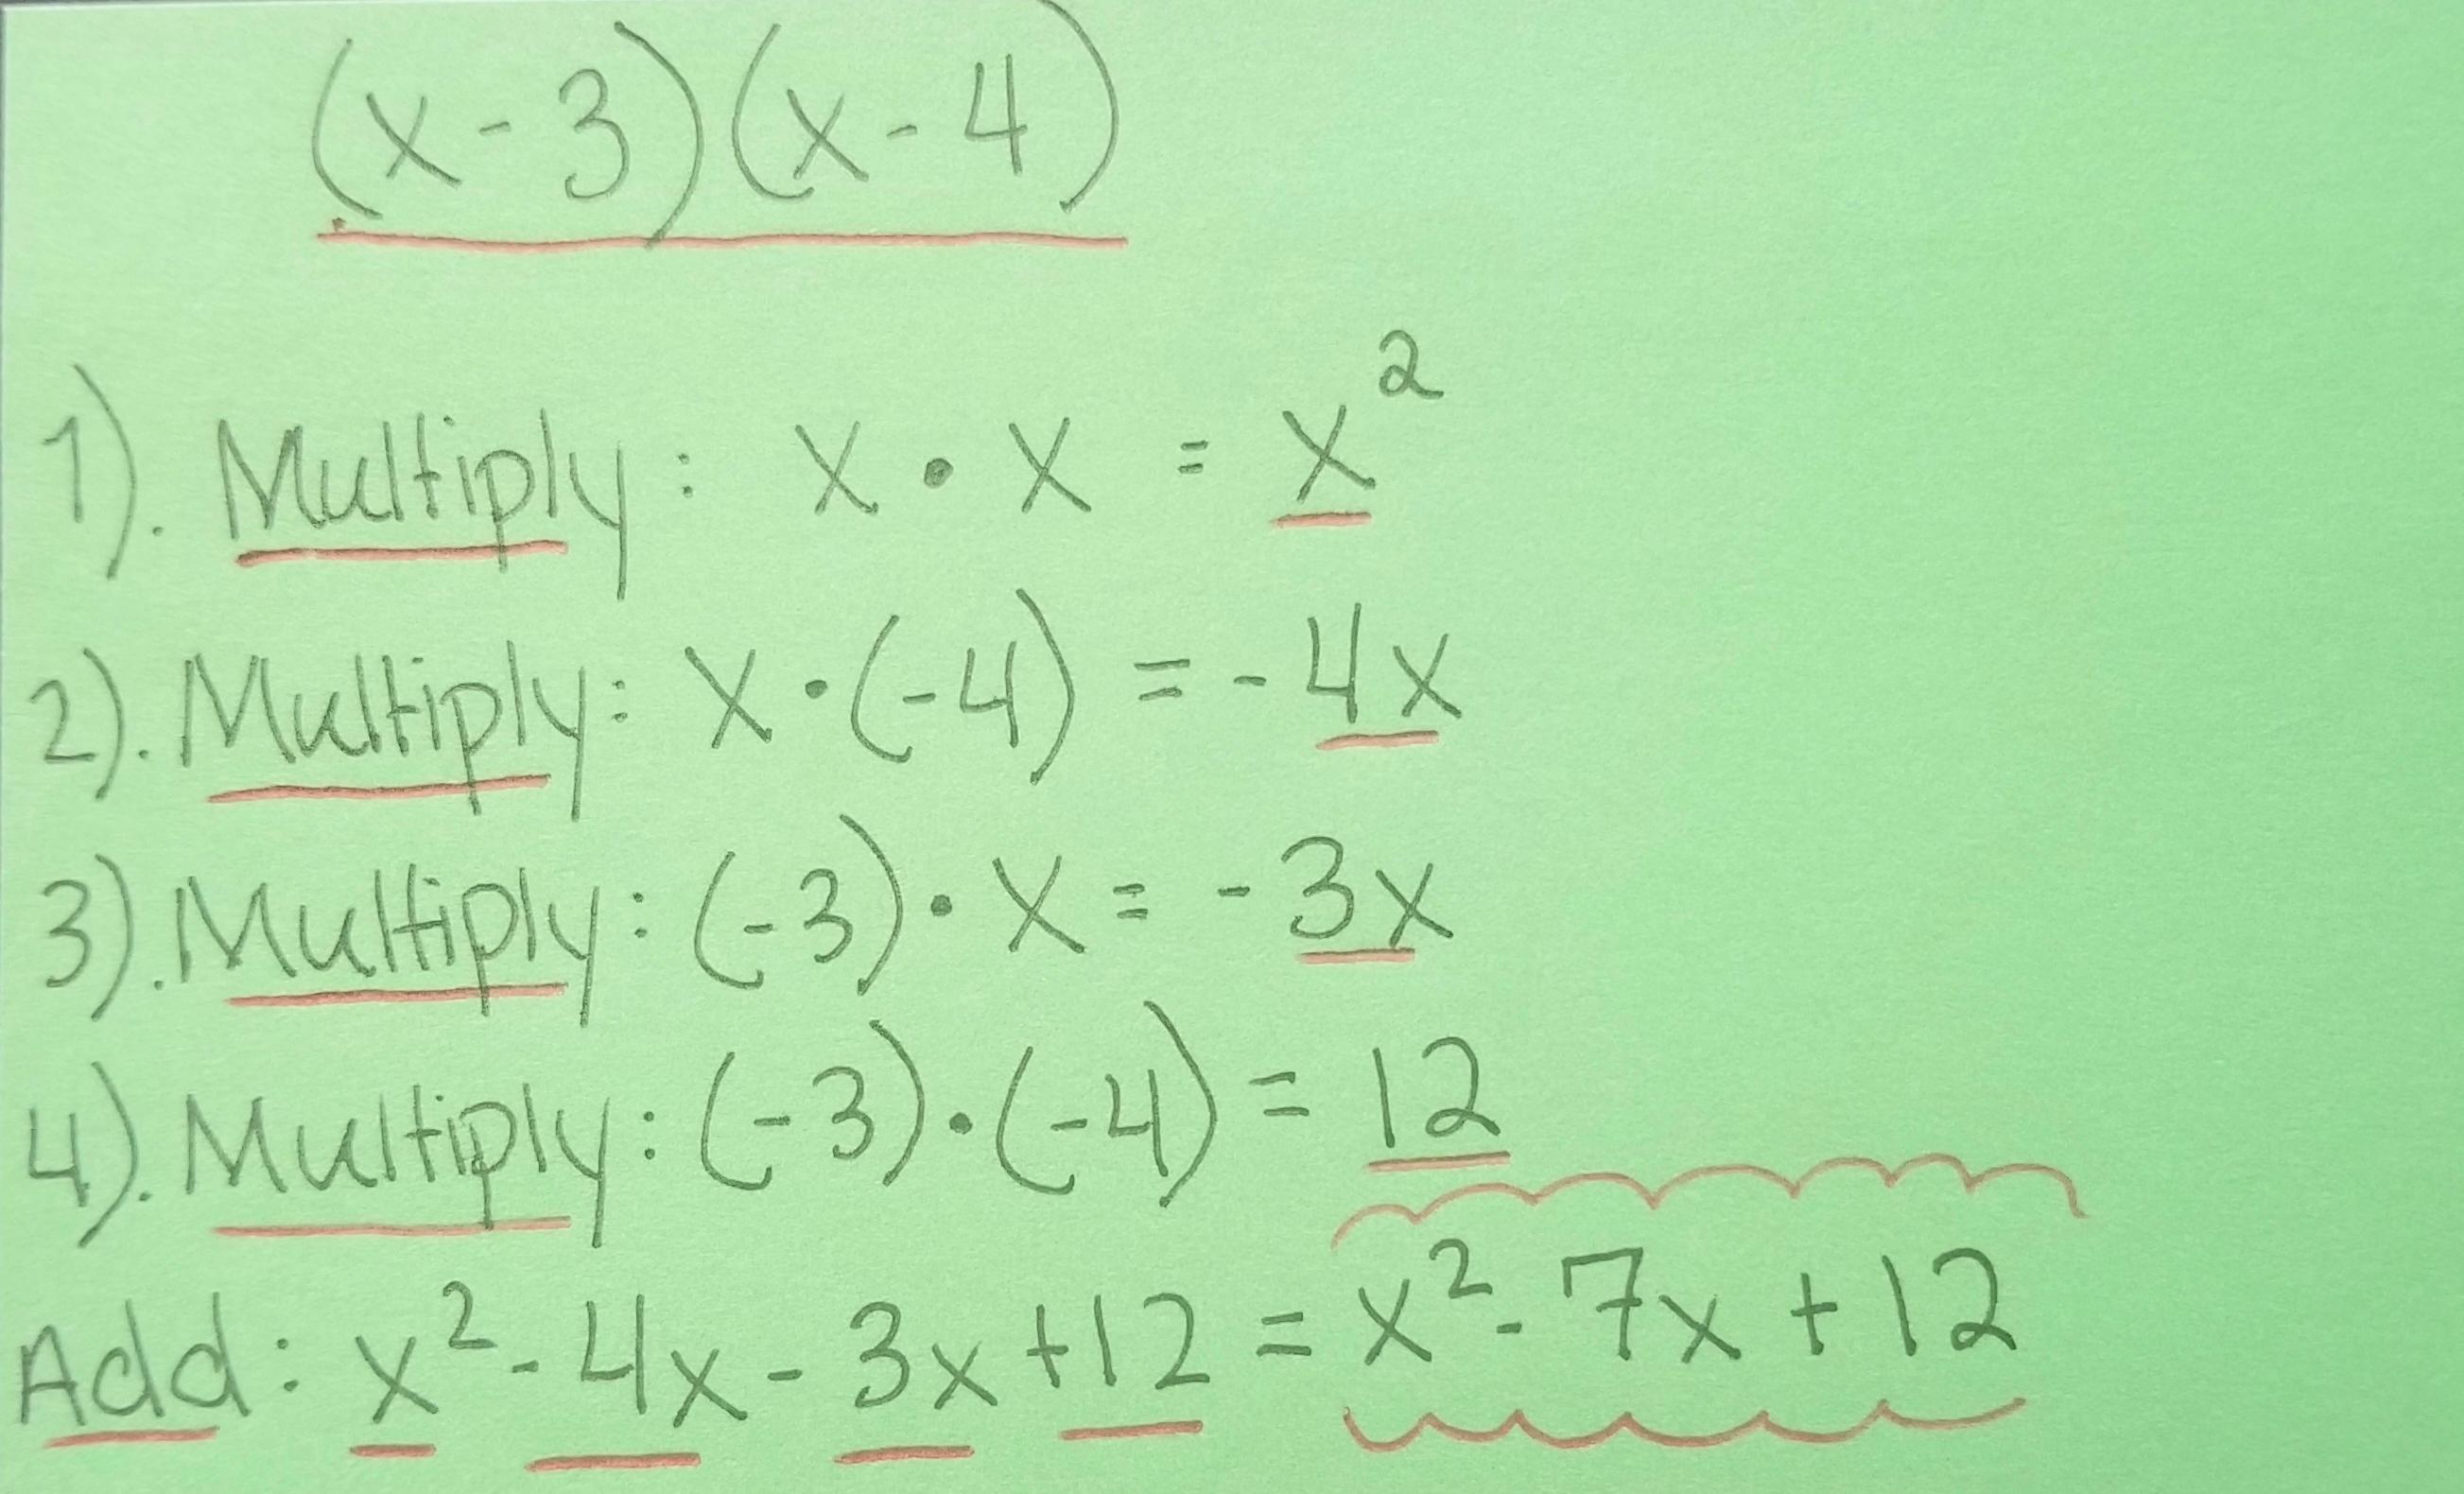 (x-3)(x-4)
1). Multiply: x • x = x²
2). Multiply: x • (-4) = -4x
3). Multiply: (-3) • x = -3x
4). Multiply: (-3) • (-4) = 12
Add: x² - 4x - 3x + 12 = x² - 7x + 12